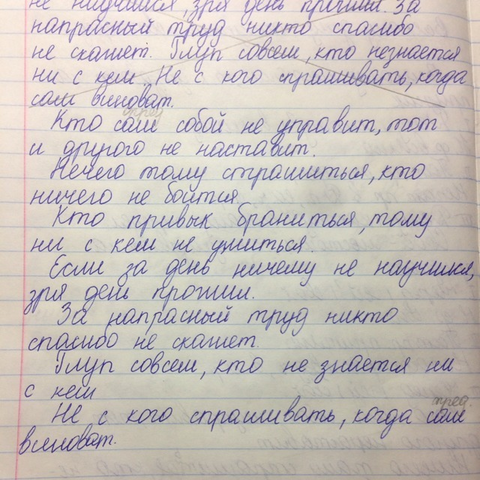 не научился зря день прошил. За
напрасный труд никто спасибо
не скажет. Глуп совсем, кто незнается
ни с кем. Не с кого спрашивать, когда
сам виноват.
Кто сам собой не управит, тот
и другого не наставит.
Нечего тому страшиться, кто
ничего не боится
Кто привык браниться, тому
ни с кем не ужиться
Если за день ничему не научился,
зря день прошил.
За напрасный труд никто
спасибо не скажет
Глуп совсем, кто не знается ни
с кем
пред.
Не с кого спрашивать, когда сам
виноват.